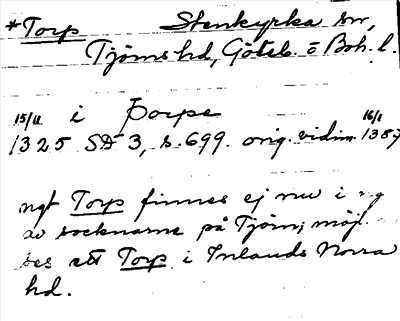 *Torp Stenkyrka sn,
Tjörns hd, Göteb. o Boh. l.
15/11 i Þorpe 16/1
1325 SD 3, s. 699. orig. vidim. 1387
ngt Torp finnes ej nu i ng
av socknarna på Tjörn; möjl.
ses ett Torp i Inlands Norra
hd.